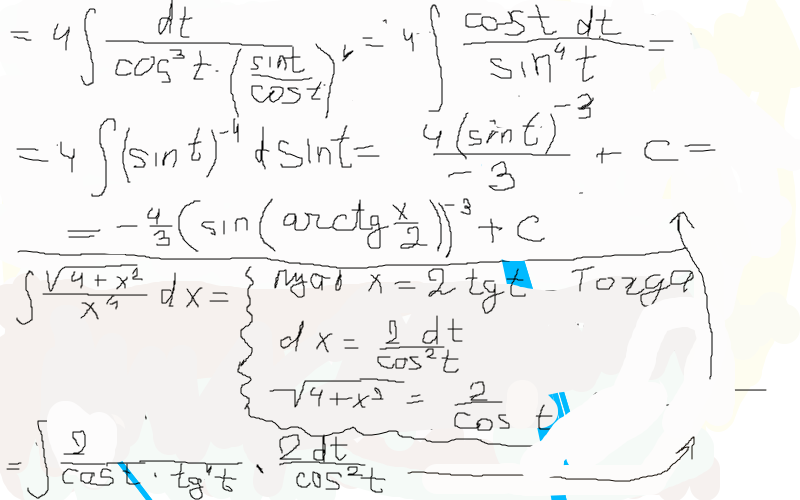 = 4 ∫ dt / (cos³ t · (sin t / cos t)⁴) = 4 ∫ cos t dt / sin⁴ t =
= 4 ∫ (sin t)⁻⁴ d sin t = 4 (sin t)⁻³ / −3 + C =
= − 4/3 (sin (arctg x/2))⁻³ + C
∫ √(4 + x²) / x⁴ dx = { пусть x = 2 tg t. Тогда
dx = 2 dt / cos² t
√(4 + x²) = 2 / cos t
= ∫ 2 / (cos t · tg⁴ t) · 2 dt / cos² t